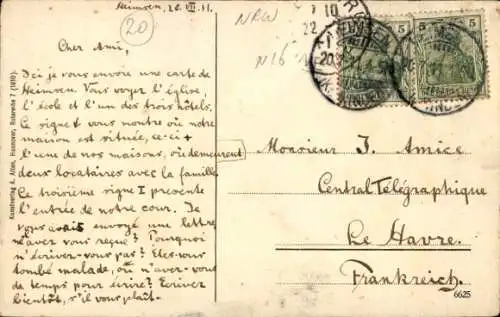 Heimsen, 20. VII. 11.
20
NRW
Cher Ami,
Ici je vous envoie une carte de
Heimsen. Vous voyez l'église,
l'école et l'un des trois hôtels.
Le signe x vous montre où notre
maison est située, ce-ci +
l'une de nos maisons, où demeurent
deux locataires avec la famille.
Le troisième signe I présente
l'entrée de notre cour. Je
vous avais envoyé une lettre,
l'avez vous reçue? Pourquoi
n'écrivez-vous pas? Etes-vous
tombé malade, où n'avez-vous
de temps pour écrire? Ecrivez
bientôt, s'il vous plaît.-
Monsieur J. Amice
Central Télégraphique
Le Havre.
Frankreich.
Kunstverlag A. Alten, Hannover, Rotereihe 7
6625
5
5